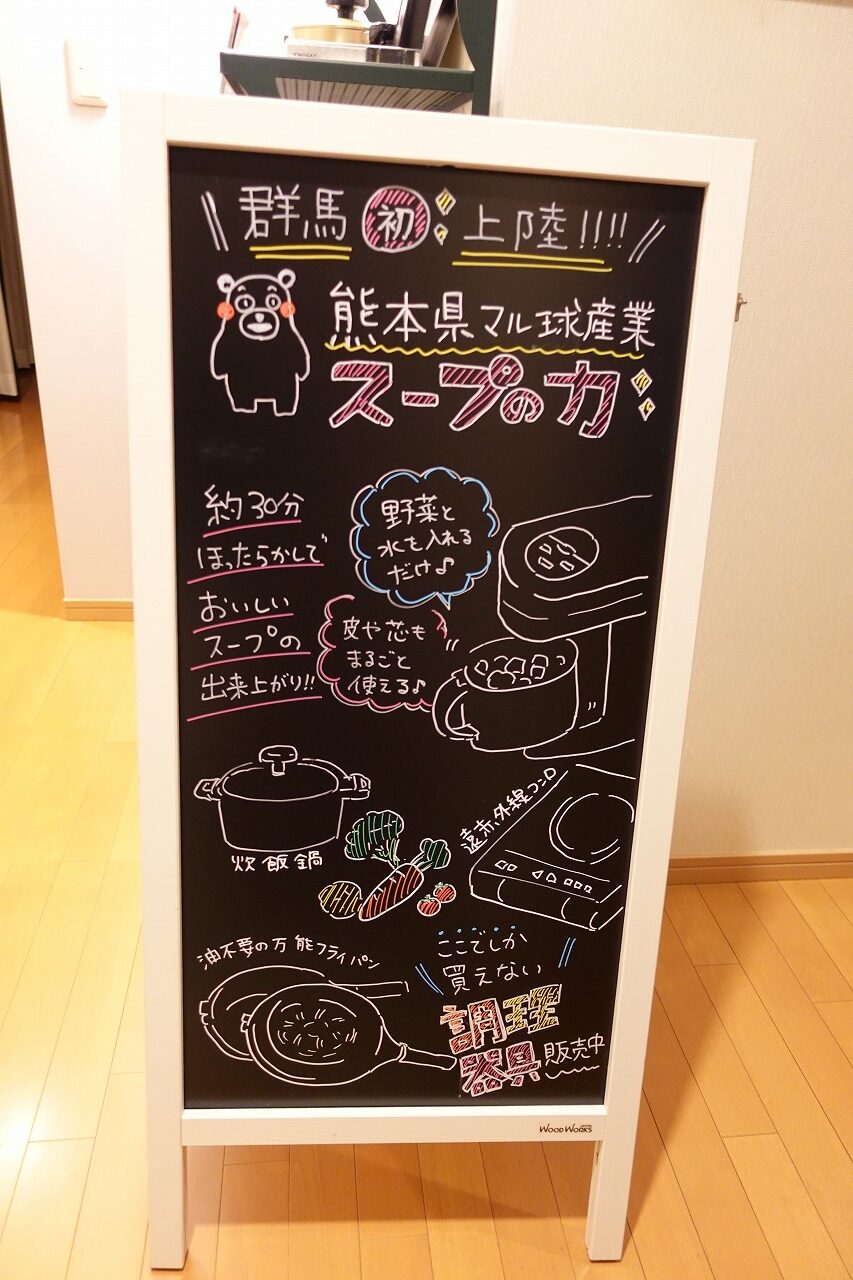 群馬初上陸!!!!
熊本県マル球産業
スープの力
約30分
ほったらかしで
おいしい
スープの
出来上がり!!
野菜と
水を入れる
だけ♪
皮や芯も
まるごと
使える♪
炊飯鍋
遠赤外線コンロ
油不要の万能フライパン
ここでしか
買えない
調理
器具販売中
WOODWORKS